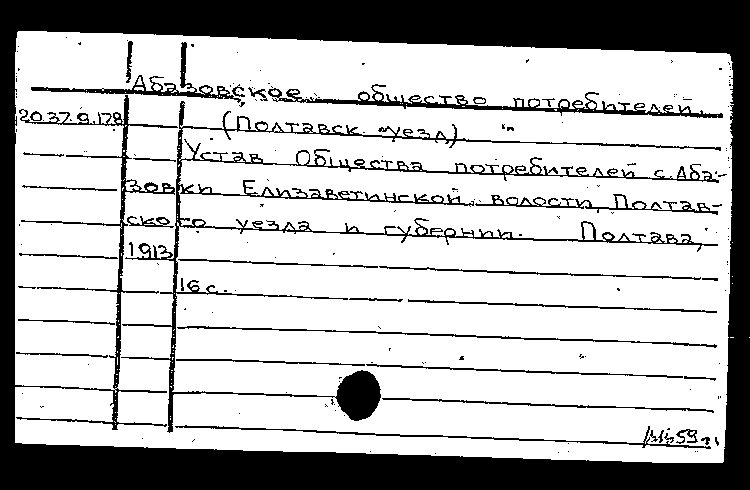 Абазовское общество потребителей.
20.37.9.178 (Полтавск. уезд).
Устав Общества потребителей с. Аба-
зовки Елизаветинской волости, Полтав-
ского уезда и губернии. Полтава,
1913
16 с.